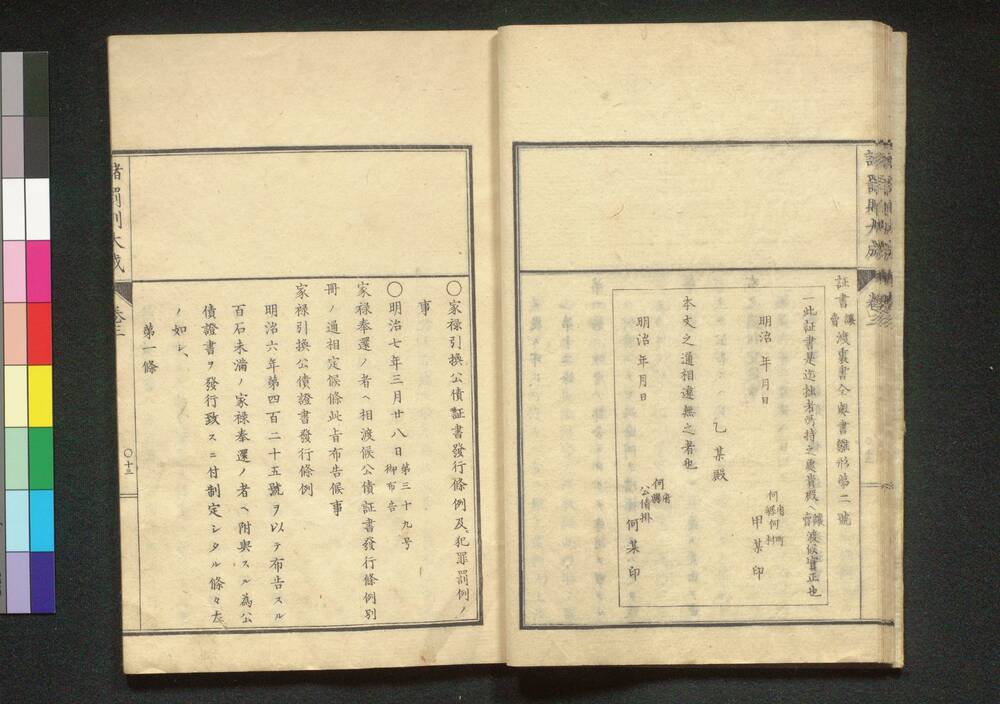 証書讓賣渡裏書全奥書雛形第二號
一此証書是迄拙者所持之處貴殿ヘ讓賣渡候實正也
明治 年月日
何府縣何町村
甲某印
乙某殿
本文之通相違無之者也
何府縣
公債掛
明治 年月日
何某印
〇家禄引換公債証書発行條例及犯罪罰例ノ
事
〇明治七年三月廿八日 第三十九号御布告
家禄奉還ノ者ヘ相渡候公債証書発行條例別
冊ノ通相定候條此旨布告候事
家禄引換公債證書發行條例
明治六年第四百二十五號ヲ以テ布告スル
百石未滿ノ家禄奉還ノ者ヘ附與スル為公
債證書ヲ發行致スニ付制定シタル條々左
ノ如シ
第一條
諸罰則大成
卷三
〇十三